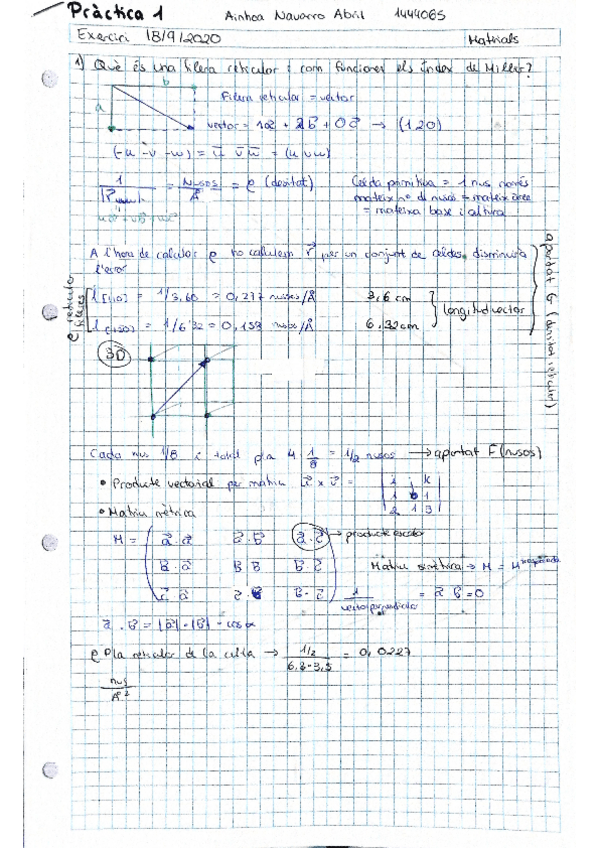 Pràctica 1 Ainhoa Navarro Abril 1444065
Exercici 18/9/2020 Matrials
1) Què és una filera reticular i com funcionen els índex de Miller?
b
a
Filera reticular = vector
vector = 1a + 2b + 0c → (120)
(-u -v -w) = u v w = (u v w)
1 / = nusos / Å = ρ (densitat)
Cel·da primitiva = 1 nus, només
mateix nº de nusos = mateix àrea
= mateixa base i altura
A l'hora de calcular ρ no calculem r per un conjunt de cel·des, disminuirà
l'error
ρ reticular fileres
l [110] = 1/3,60 = 0,277 nusos/Å 3,6 cm
l [120] = 1/6'32 = 0,158 nusos/Å 6,32cm
longitud vector
apartat G (densitat reticular)
3D
Cada nus 1/8 i total pla 4 · 1/8 = 1/2 nusos → apartat F (nusos)
• Producte vectorial per matriu × =
i j k
1 1
2 1 3
• Matriu mètrica
M = a · a a · b a · c → producte escalar
b · a b b b · c
c · a
Matriu simètrica → M = M
1 / vector perpendicular = a b = 0
a · b = |a| · |b| · cos α
ρ pla reticular de la cel·la → 1/2 / 6,3 · 3,5 = 0,0227
nus / Å²